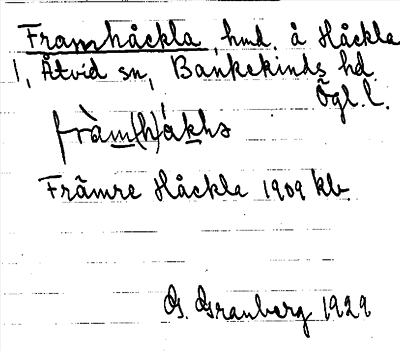 Framhåckla, hmd. å Håckla
1, Åtvid sn, Bankekinds hd.
Ögl. l.
fràm(h)ákhs
Främre Håckla 1909 kb.
G. Granberg 1929